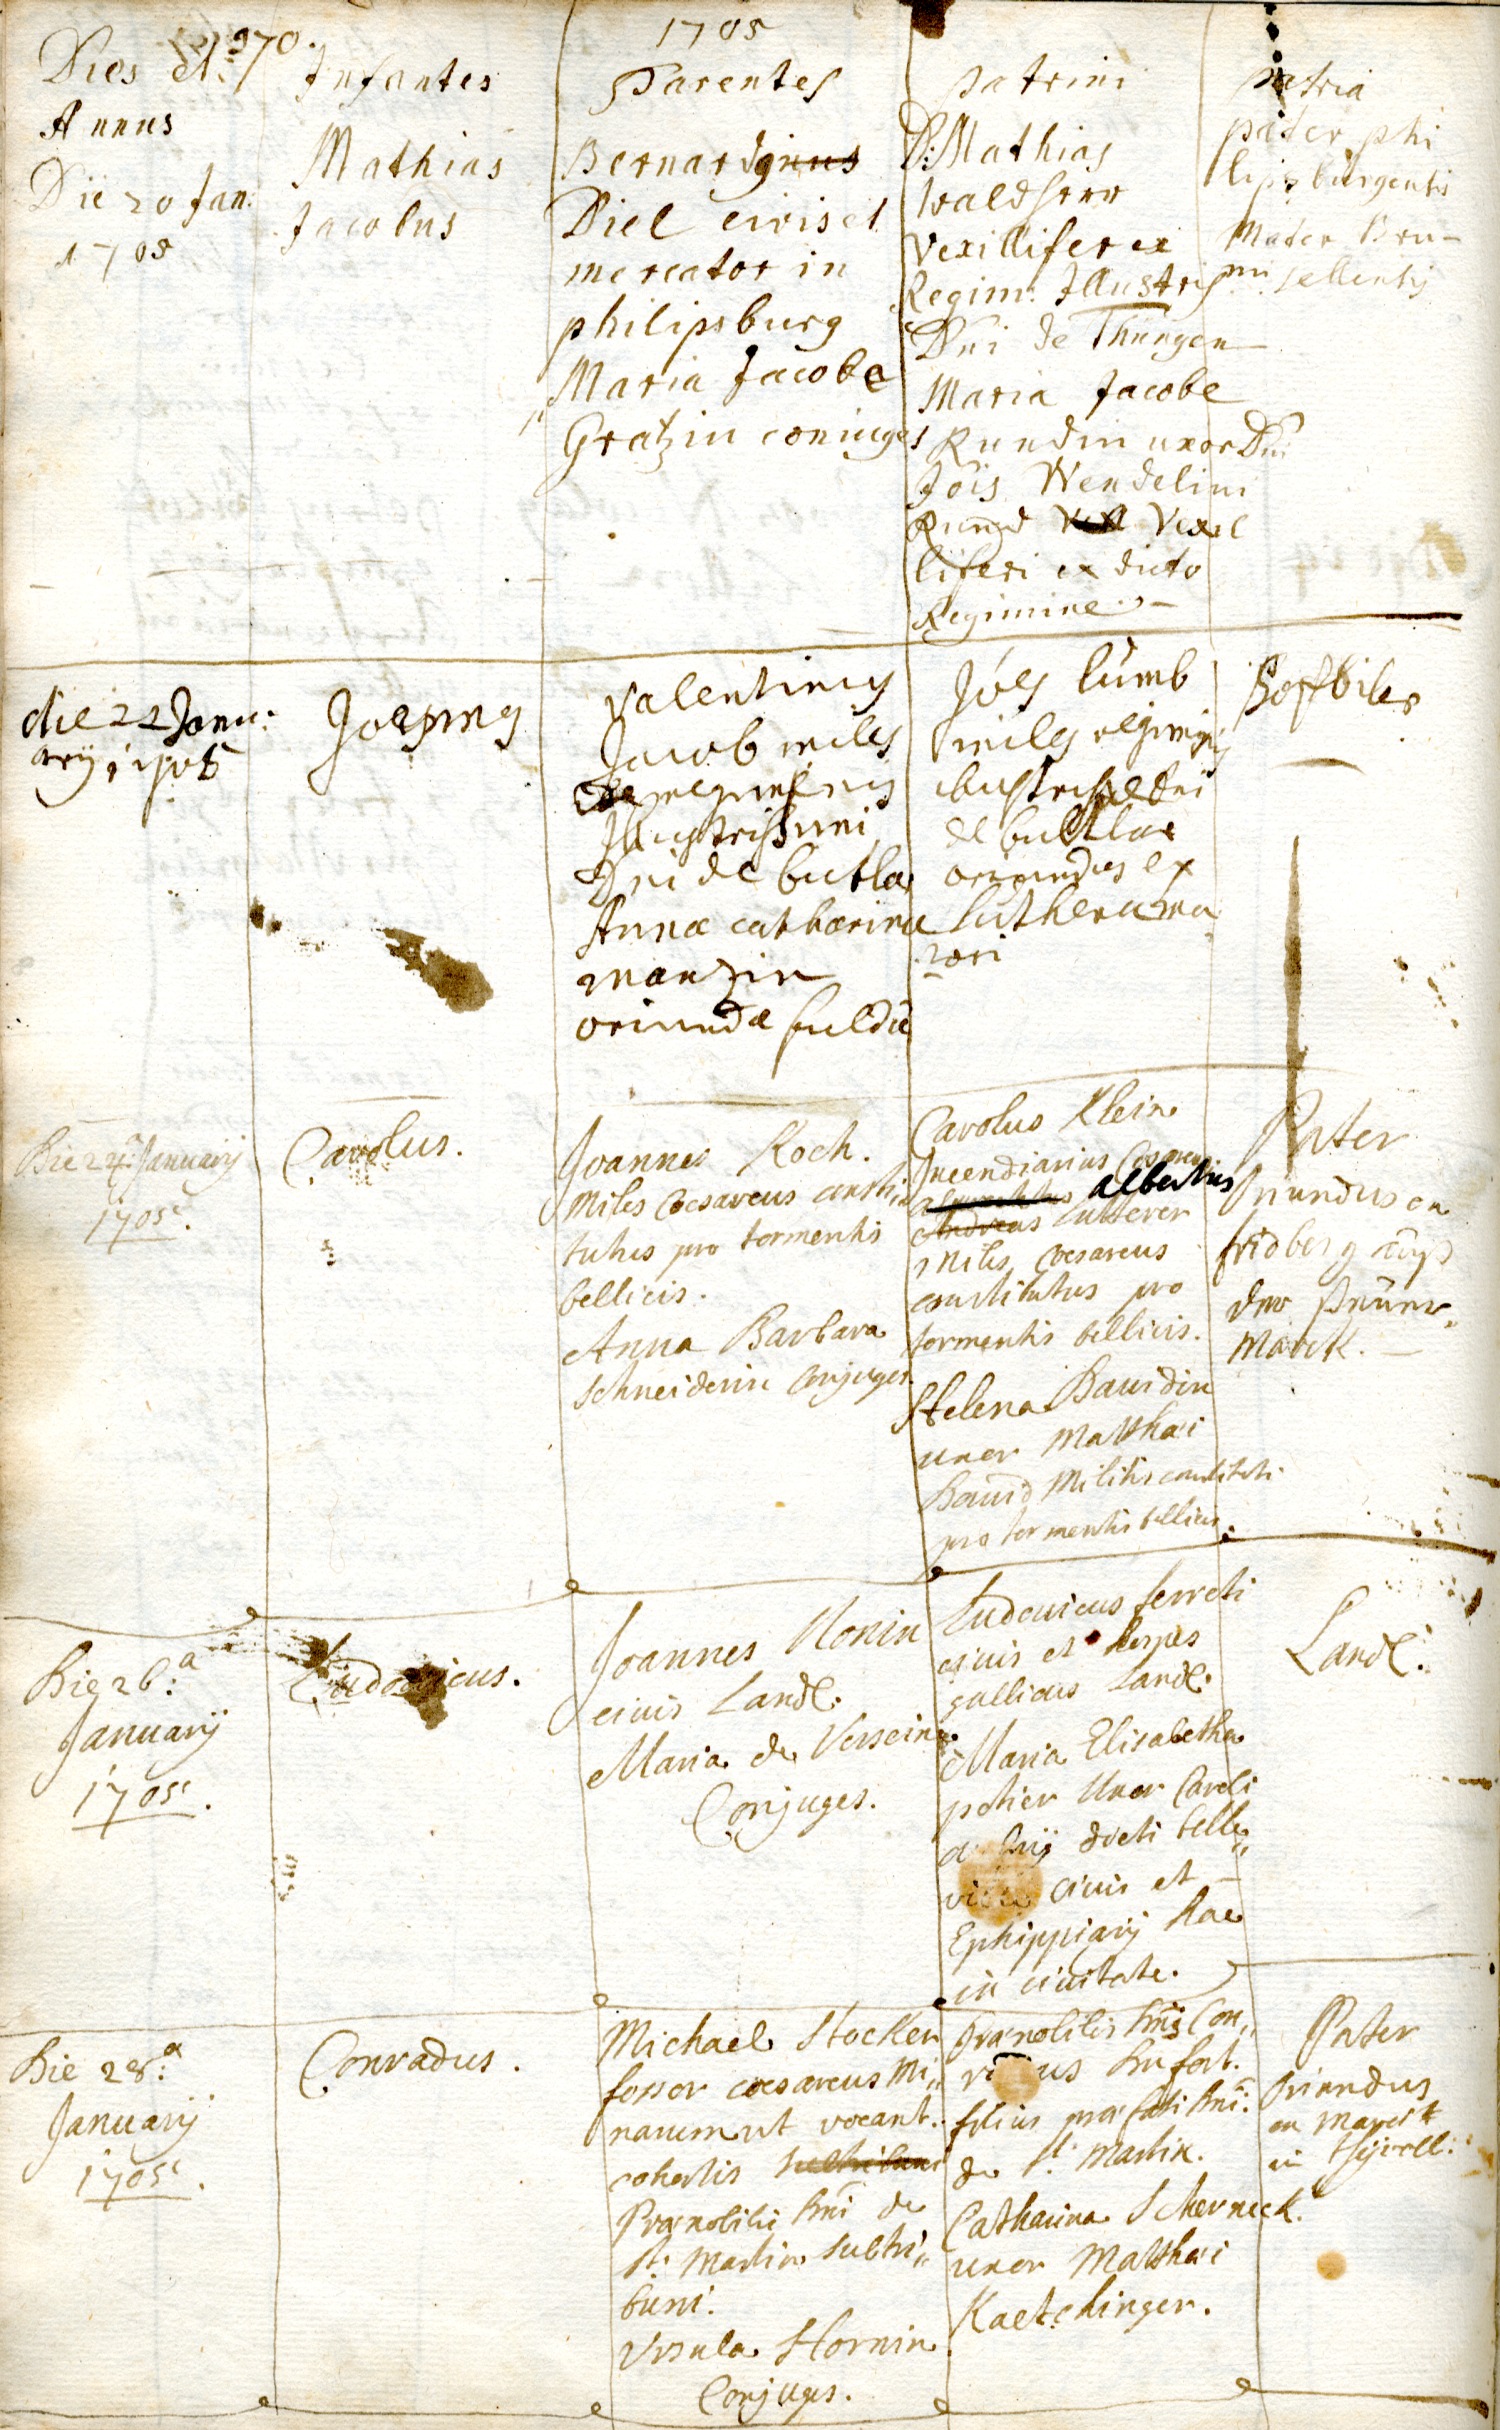 370.
1705
Dies et
Annus
Infantes
Parentes
patrini
patria
Die 20 Jan:
1705
Mathias
Jacobus
Bernard
Diel civis et
mercator in
philipsburg
Maria Jacobe
Gratzin coniuges
D: Mathias
Waldherr
Vexillifer ex
Regim: Illustrissmi
Dni de Thüngen
Maria Jacobe
Rundin uxor Dni
Jois Wendelini
Rund Vexil
liferi ex dicto
Regimine.
pater phi
lipsburgensis
Mater Bru-
sellensis
die 22 Janu:
arij 1705
Joannes
Valentinus
Jacob miles
regiminis
Illustrissimi
Dni de butlar
Anna catharina
manzin
oriunda fulda
Joes lumb
miles regiminis
illustrissime dni
de buttlar
oriundus ex
Die 27 Januarij
1705.
Carolus.
Joannes Koch.
Miles Caesareus consti„
tutus pro tormentis
bellicis.
Anna Barbara
Schneiderin Conjuges.
Carolus Klein
Incendiarius Caesareus
albertus
Lutterer
Miles Caesareus
constitutus pro
tormentis bellicis.
Helena Bauidin
uxor Matthaei
Bauid Militis constituti
pro tormentis bellicis.
Pater
oriundus ex
fridberg auß
der steuer„
Marck.
Die 26:a
Januarij
1705.
Ludovicus.
Joannes Monin
civis Land:
Maria de Versein
Conjuges.
Ludovicus ferreti
civis et hospes
gallicus Land:
Maria Elisabetha
potier Uxor Caroli
dicti belle„
civis et
Ephippiarij hac
in civitate.
Land:
Die 28:a
Januarij
1705.
Conradus.
Michael Stocker
fossor caesareus Mi„
narum ut vocant.
cohortis
Praenobilis Dni de
St: Martin subtri„
buni.
Ursula Hornin
Conjuges.
Praenobilis Dns Con„
filius praefati Dni:
de St: Martin.
Catharina Scherneck.
uxor Matthaei
Kaetchinger.
Pater
oriundus
in Tyroll: